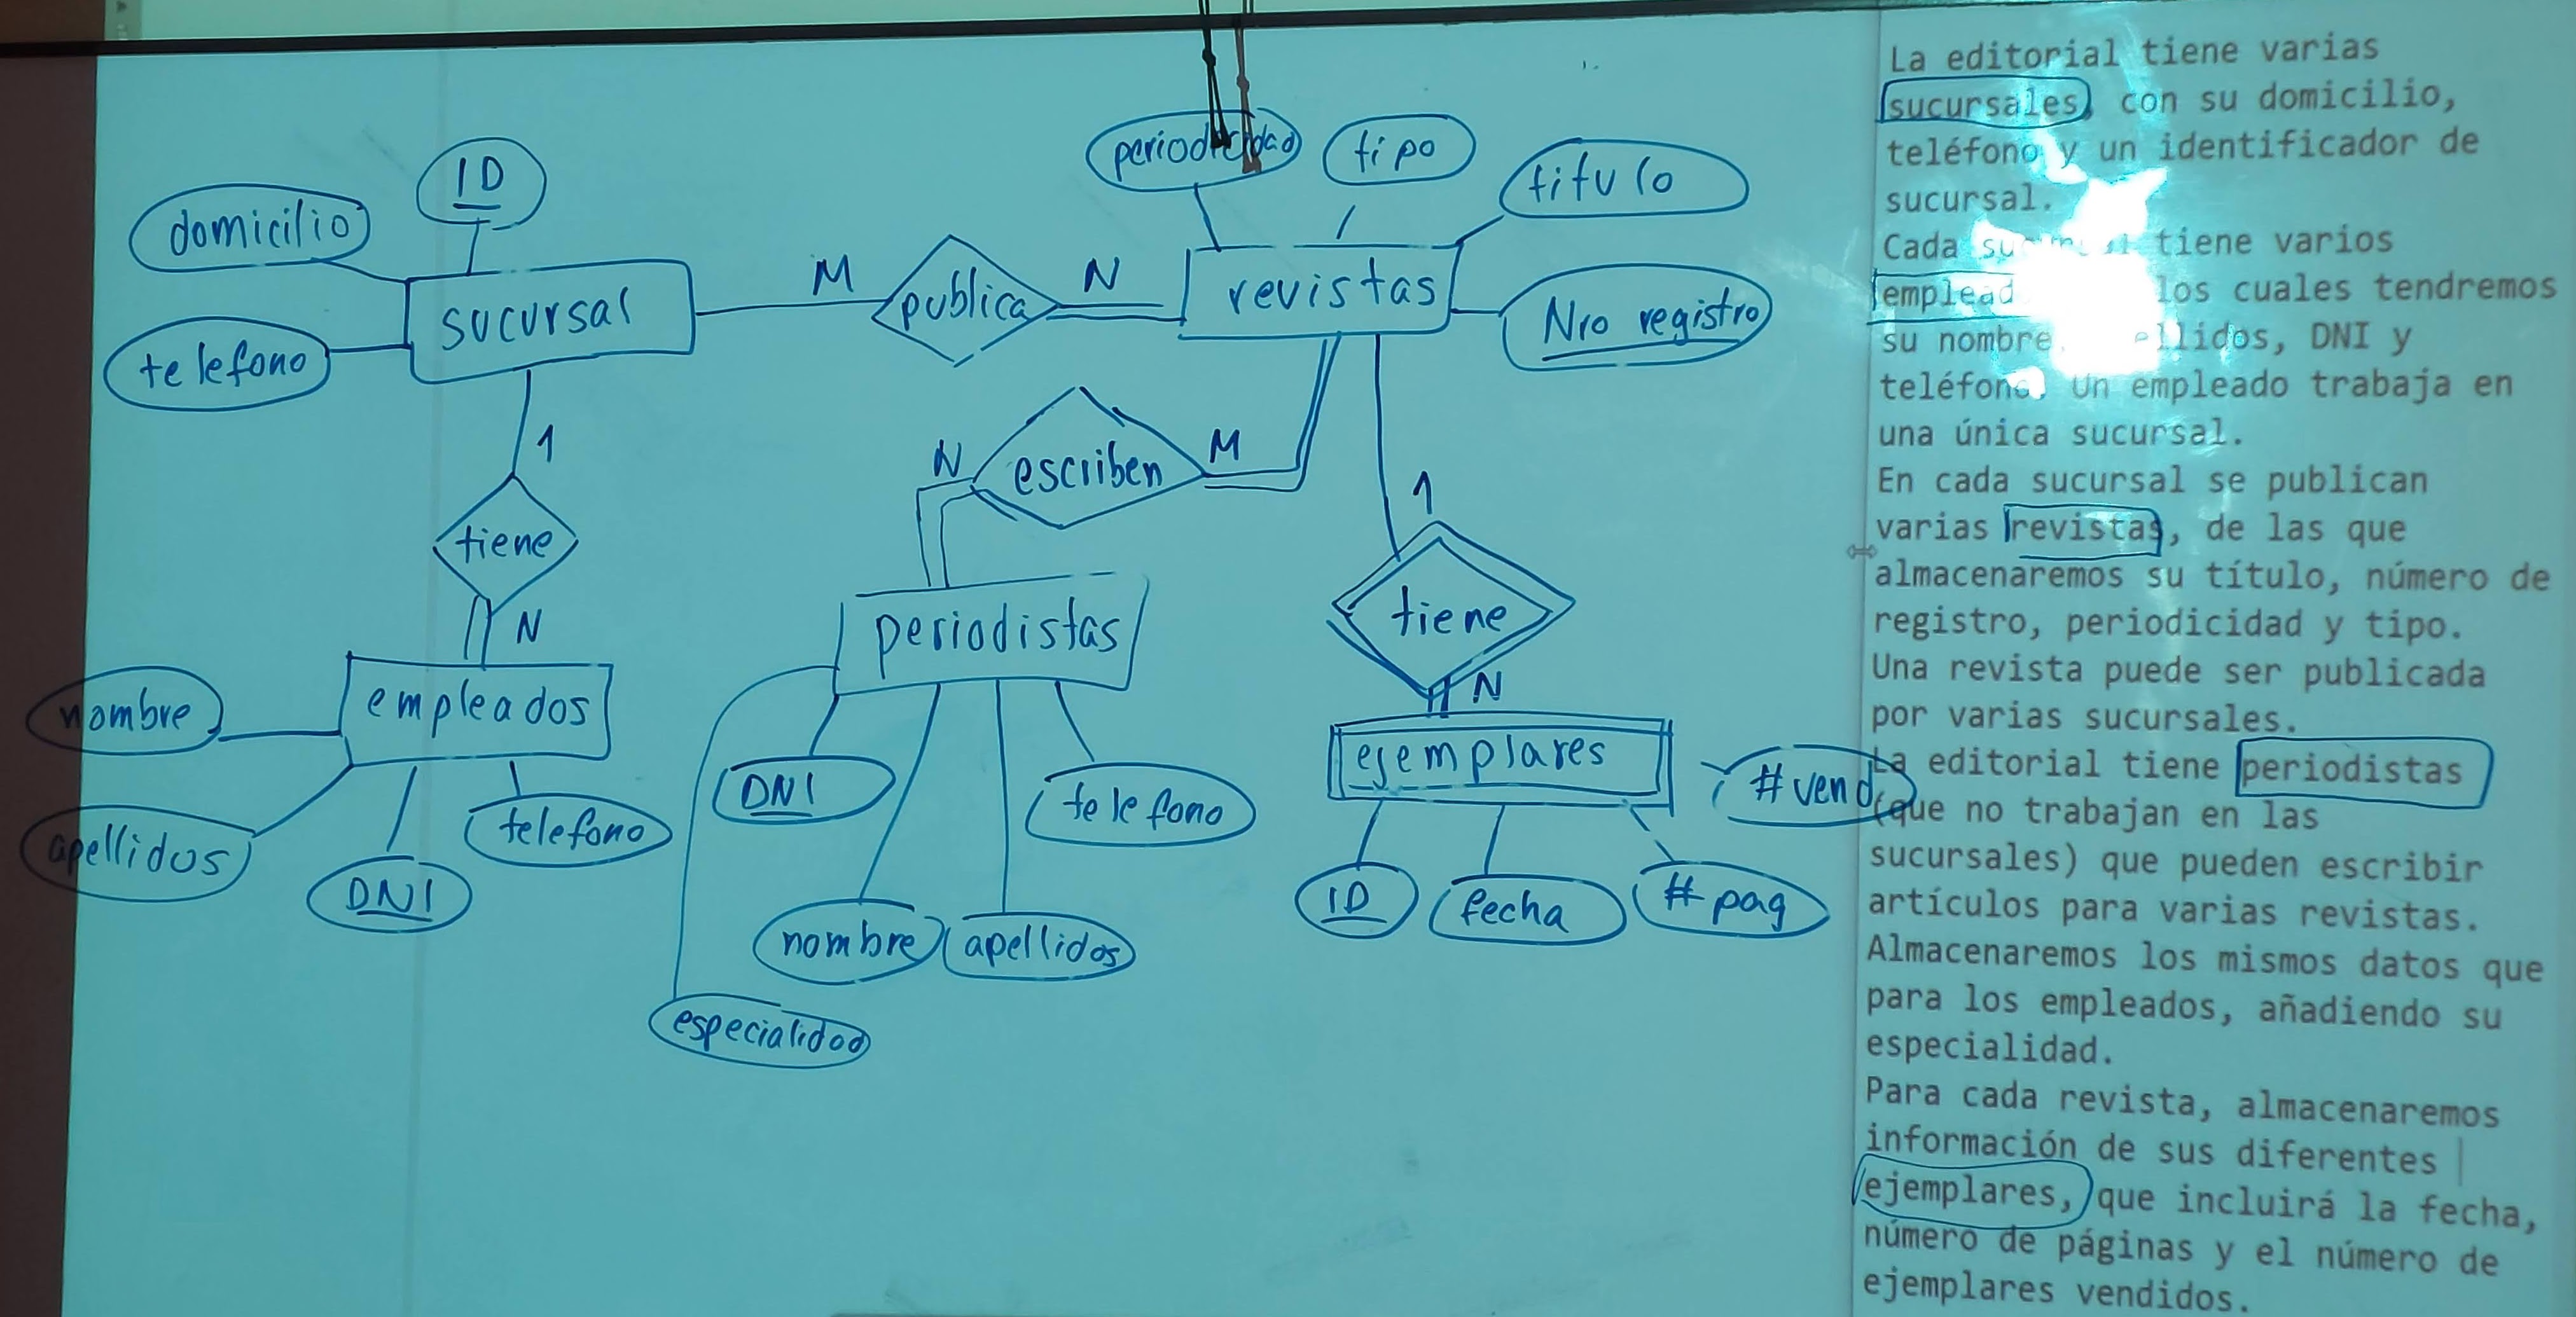 ID
domicilio
telefono
sucursal
M
publica
N
periodicidad
tipo
titulo
revistas
Nro registro
1
tiene
N
N
escriben
M
1
tiene
N
empleados
nombre
apellidos
DNI
telefono
periodistas
DNI
nombre
apellidos
telefono
especialidad
ejemplares
ID
fecha
# pag
# vend
La editorial tiene varias
sucursales, con su domicilio,
teléfono y un identificador de
sucursal.
Cada tiene varios
los cuales tendremos
su nombre, DNI y
teléfono. Un empleado trabaja en
una única sucursal.
En cada sucursal se publican
varias revistas, de las que
almacenaremos su título, número de
registro, periodicidad y tipo.
Una revista puede ser publicada
por varias sucursales.
La editorial tiene periodistas
(que no trabajan en las
sucursales) que pueden escribir
artículos para varias revistas.
Almacenaremos los mismos datos que
para los empleados, añadiendo su
especialidad.
Para cada revista, almacenaremos
información de sus diferentes
ejemplares, que incluirá la fecha,
número de páginas y el número de
ejemplares vendidos.